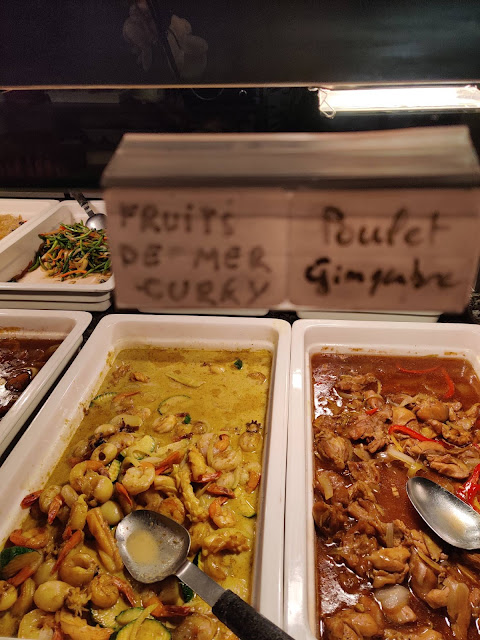 FRUITS
DE-MER
CURRY
Poulet
Gingembre